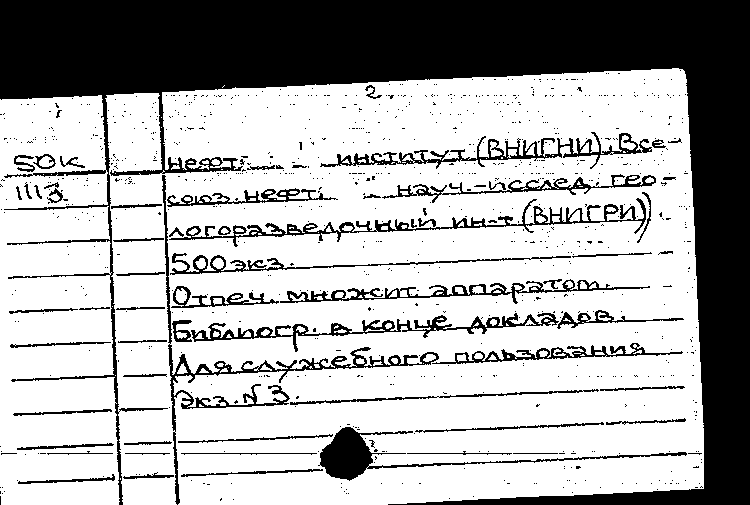 2.
50К нефт. институт (ВНИГНИ), Все-
1113 союз. нефт. науч.-исслед. гео-
логоразведочный ин-т (ВНИГРИ)).
500 экз.
Отпеч. множит. аппаратом.
Библиогр. в конце докладов.
Для служебного пользования
Экз. № 3.